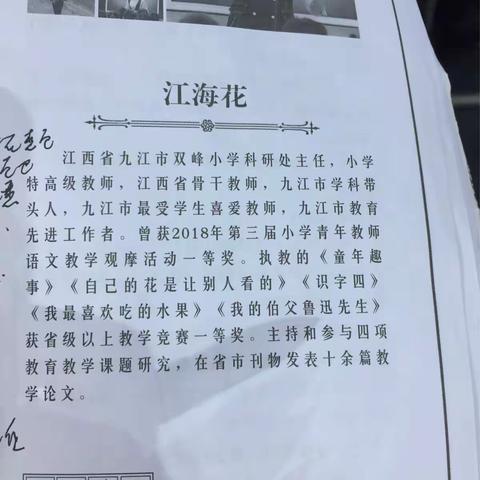 江海花
江西省九江市双峰小学科研处主任，小学
特高级教师，江西省骨干教师，九江市学科带
头人，九江市最受学生喜爱教师，九江市教育
先进工作者。曾获2018年第三届小学青年教师
语文教学观摩活动一等奖。执教的《童年趣
事》《自己的花是让别人看的》《识字四》
《我最喜欢吃的水果》《我的伯父鲁迅先生》
获省级以上教学竞赛一等奖。主持和参与四项
教育教学课题研究，在省市刊物发表十余篇教
学论文。